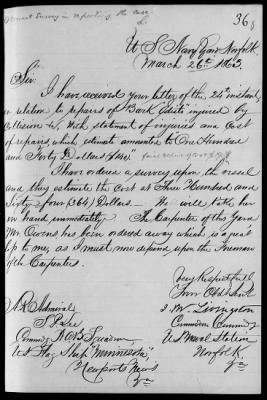 Survey in repairing of the case
368
U S Navy Yard Norfolk
March 26th 1863.
Sir
I have received your letter of the 24th instant
in relation to repairs of Bark injured by
Collision &c, With statement of injuries and Cost
of repairs which estimate amounts to One Hundred
and Forty Dollars ($140)
I have ordered a survey upon the vessel
and they estimate the Cost at Three Hundred and
Sixty four (364) Dollars. We will take her
in hand immediately. The Carpenter of this Yard
Mr Owens has been ordered away which is a great
to me, as I must now depend upon the Foreman
of the Carpenters.
Very Respectfull
Your Obdt Servt
J W Livingston
Commodore Commdg
US Naval Station
Norfolk
Va
A R Admiral
S P Lee
Commdg N A B Squadron
US Flag Ship "Minnesota"
Newports News
Va